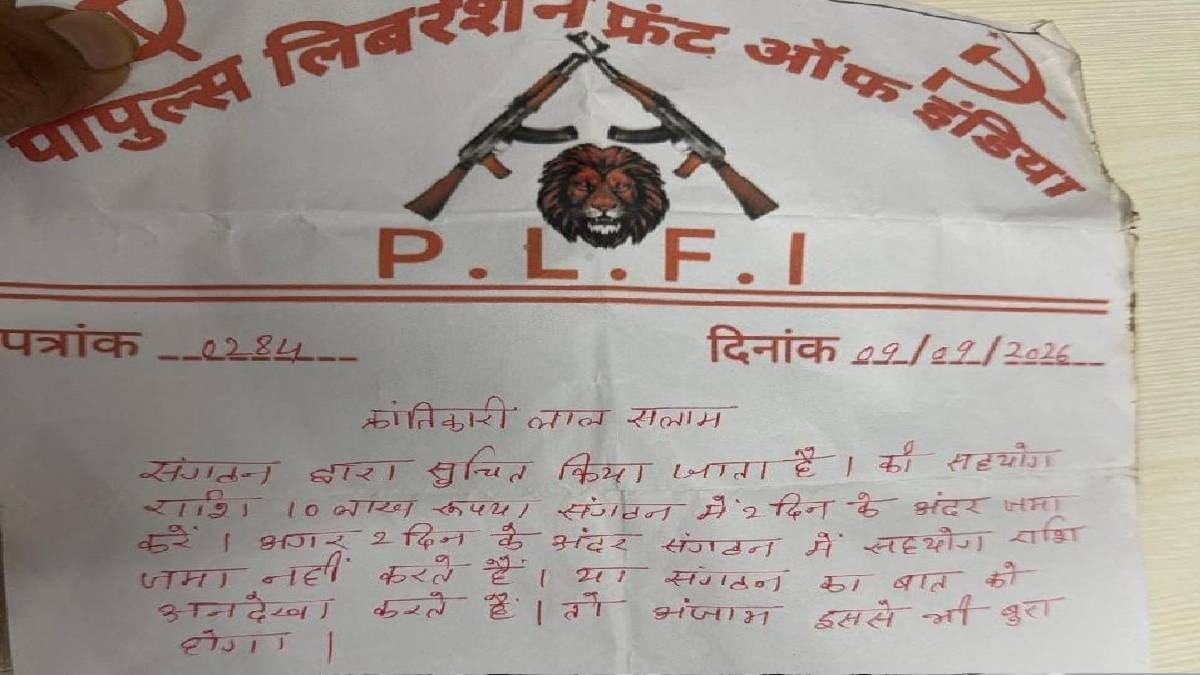 पापुल्स लिबरेशन फ्रंट ऑफ इंडिया
P.L.F.I
पत्रांक 0284 दिनांक 09/09/2026
क्रांतिकारी लाल सलाम
संगठन द्वारा सुचित किया जाता है । की सहयोग
राशि 10 लाख रूपया संगठन में 2 दिन के अंदर जमा
करें । अगर 2 दिन के अंदर संगठन में सहयोग राशि
जमा नहीं करते हैं । या संगठन का बात को
अनदेखा करते हैं । तो अंजाम इससे भी बुरा
होगा ।